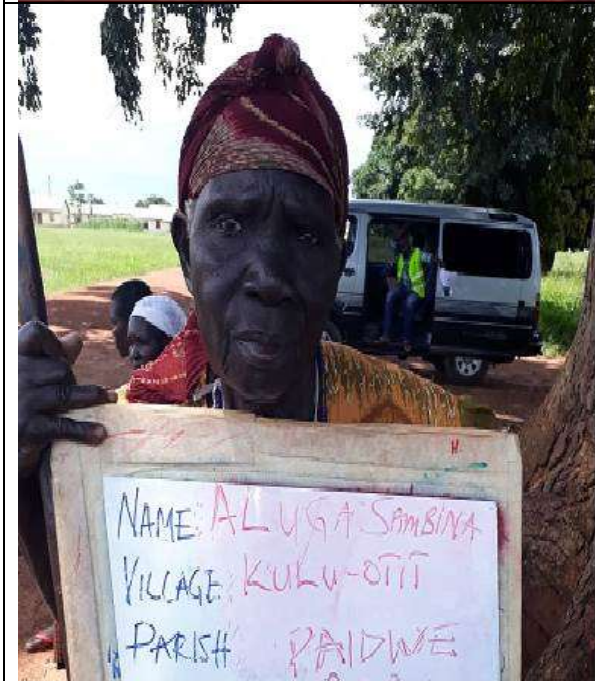 NAME: ALUGA SAMBINA
VILLAGE: KULU-OTIT
PARISH PAIDWE